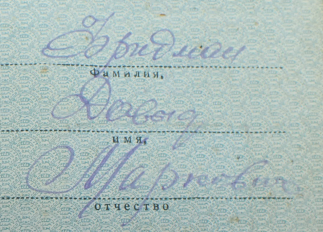 Фридман
фамилия,
Давыд
имя,
Маркович
отчество